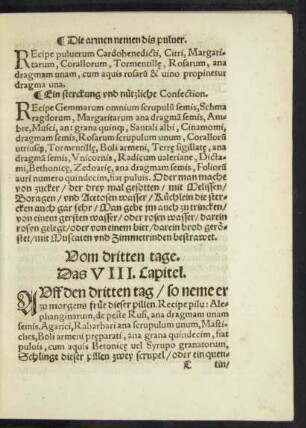 ¶ Die armen nemen dis puluer.
REcipe puluerum Cardobenedicti, Citri, Margari-
tarum, Corallorum, Tormentillę, Rosarum, ana
dragmam unam, cum aquis rosarū & uino propinetur
dragma una.
¶ Ein sterckung vnd nützliche Confection.
REcipe Gemmarum omnium scrupulū semis, Schma
ragdorum, Margaritarum ana dragmā semis, Am-
bre, Musci, ani grana quinq;, Santali albi, Cinamomi,
dragmam semis, Rosarum scrupulum unum, Corallorū
utriusq;, Tormentillę, Boli armeni, Terrę sigillatę, ana
dragmā semis, Vnicornis, Radicum ualeriane, Dicta-
mi, Bethonicę, Zedoarię, ana dragmam semis, Foliorū
auri numero quindecim, fiat puluis. Oder man mache
von zucker / der drey mal gesotten / mit Melissen /
Boragen / vnd Acetosen wasser / Küchlein die ster-
cken auch gar sehr / Man gebe jm auch zu trincken /
von einem gersten wasser / oder rosen wasser / darein
rosen gelegt / oder von einem bier / darein brod gerö-
stet / mit Muscaten vnd Zimmetrinden bestrawet.
Vom dritten tage.
Das VIII. Capitel.
AVff den dritten tag / so neme er
zu morgens frue dieser pillen. Recipe pilu: Ale-
phanginarum, de peste Rufi, ana dragmam unam
semis, Agarici, Rabarbari ana scrupulum unum, Masti-
ches, Boli armeni preparati, ana grana quindecim, fiat
puluis, cum aquis Betonicę uel Syrupo granatorum,
Schlinge dieser pillen zwey scrupel / oder ein quen-
C tin /